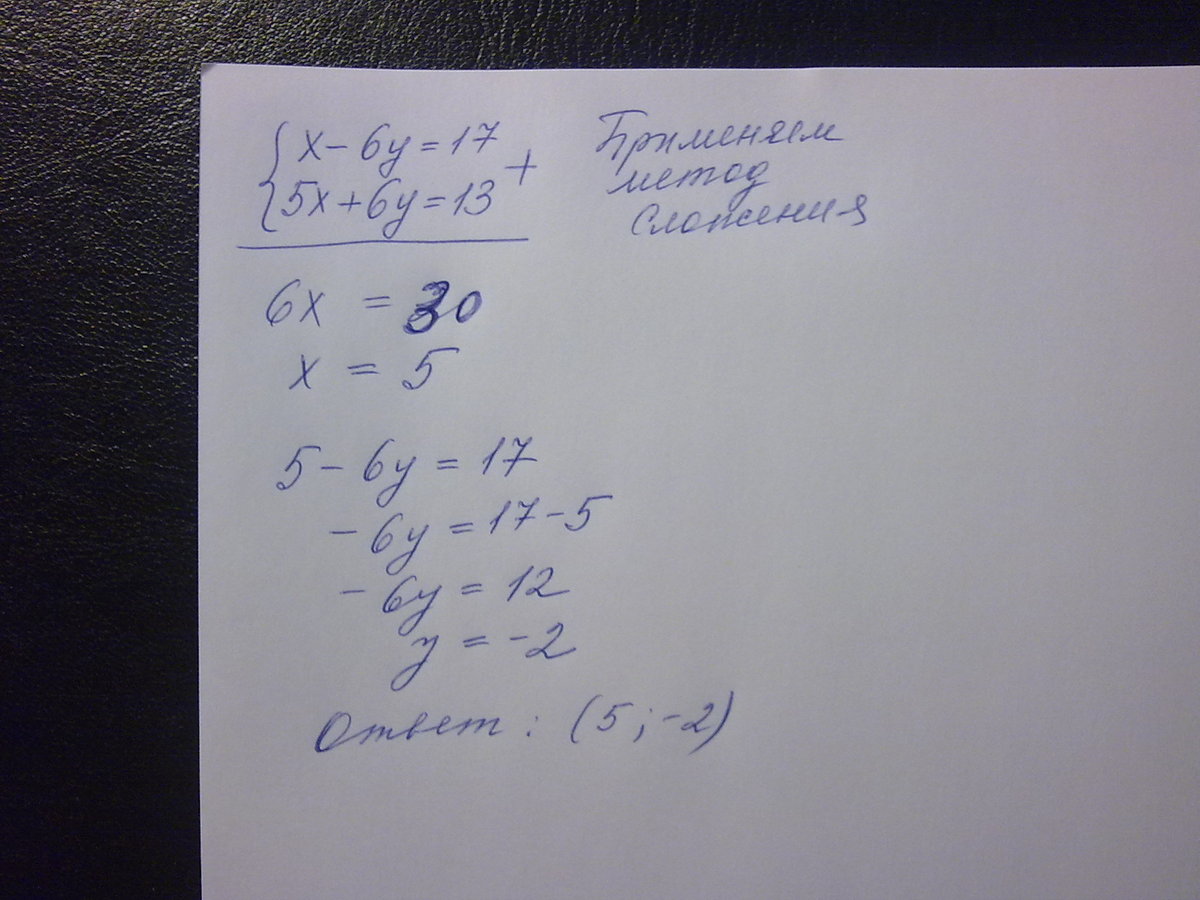 { x - 6y = 17
5x + 6y = 13 +
Применяем
метод
сложения
6x = 30
x = 5
5 - 6y = 17
- 6y = 17 - 5
- 6y = 12
y = -2
Ответ: (5; -2)